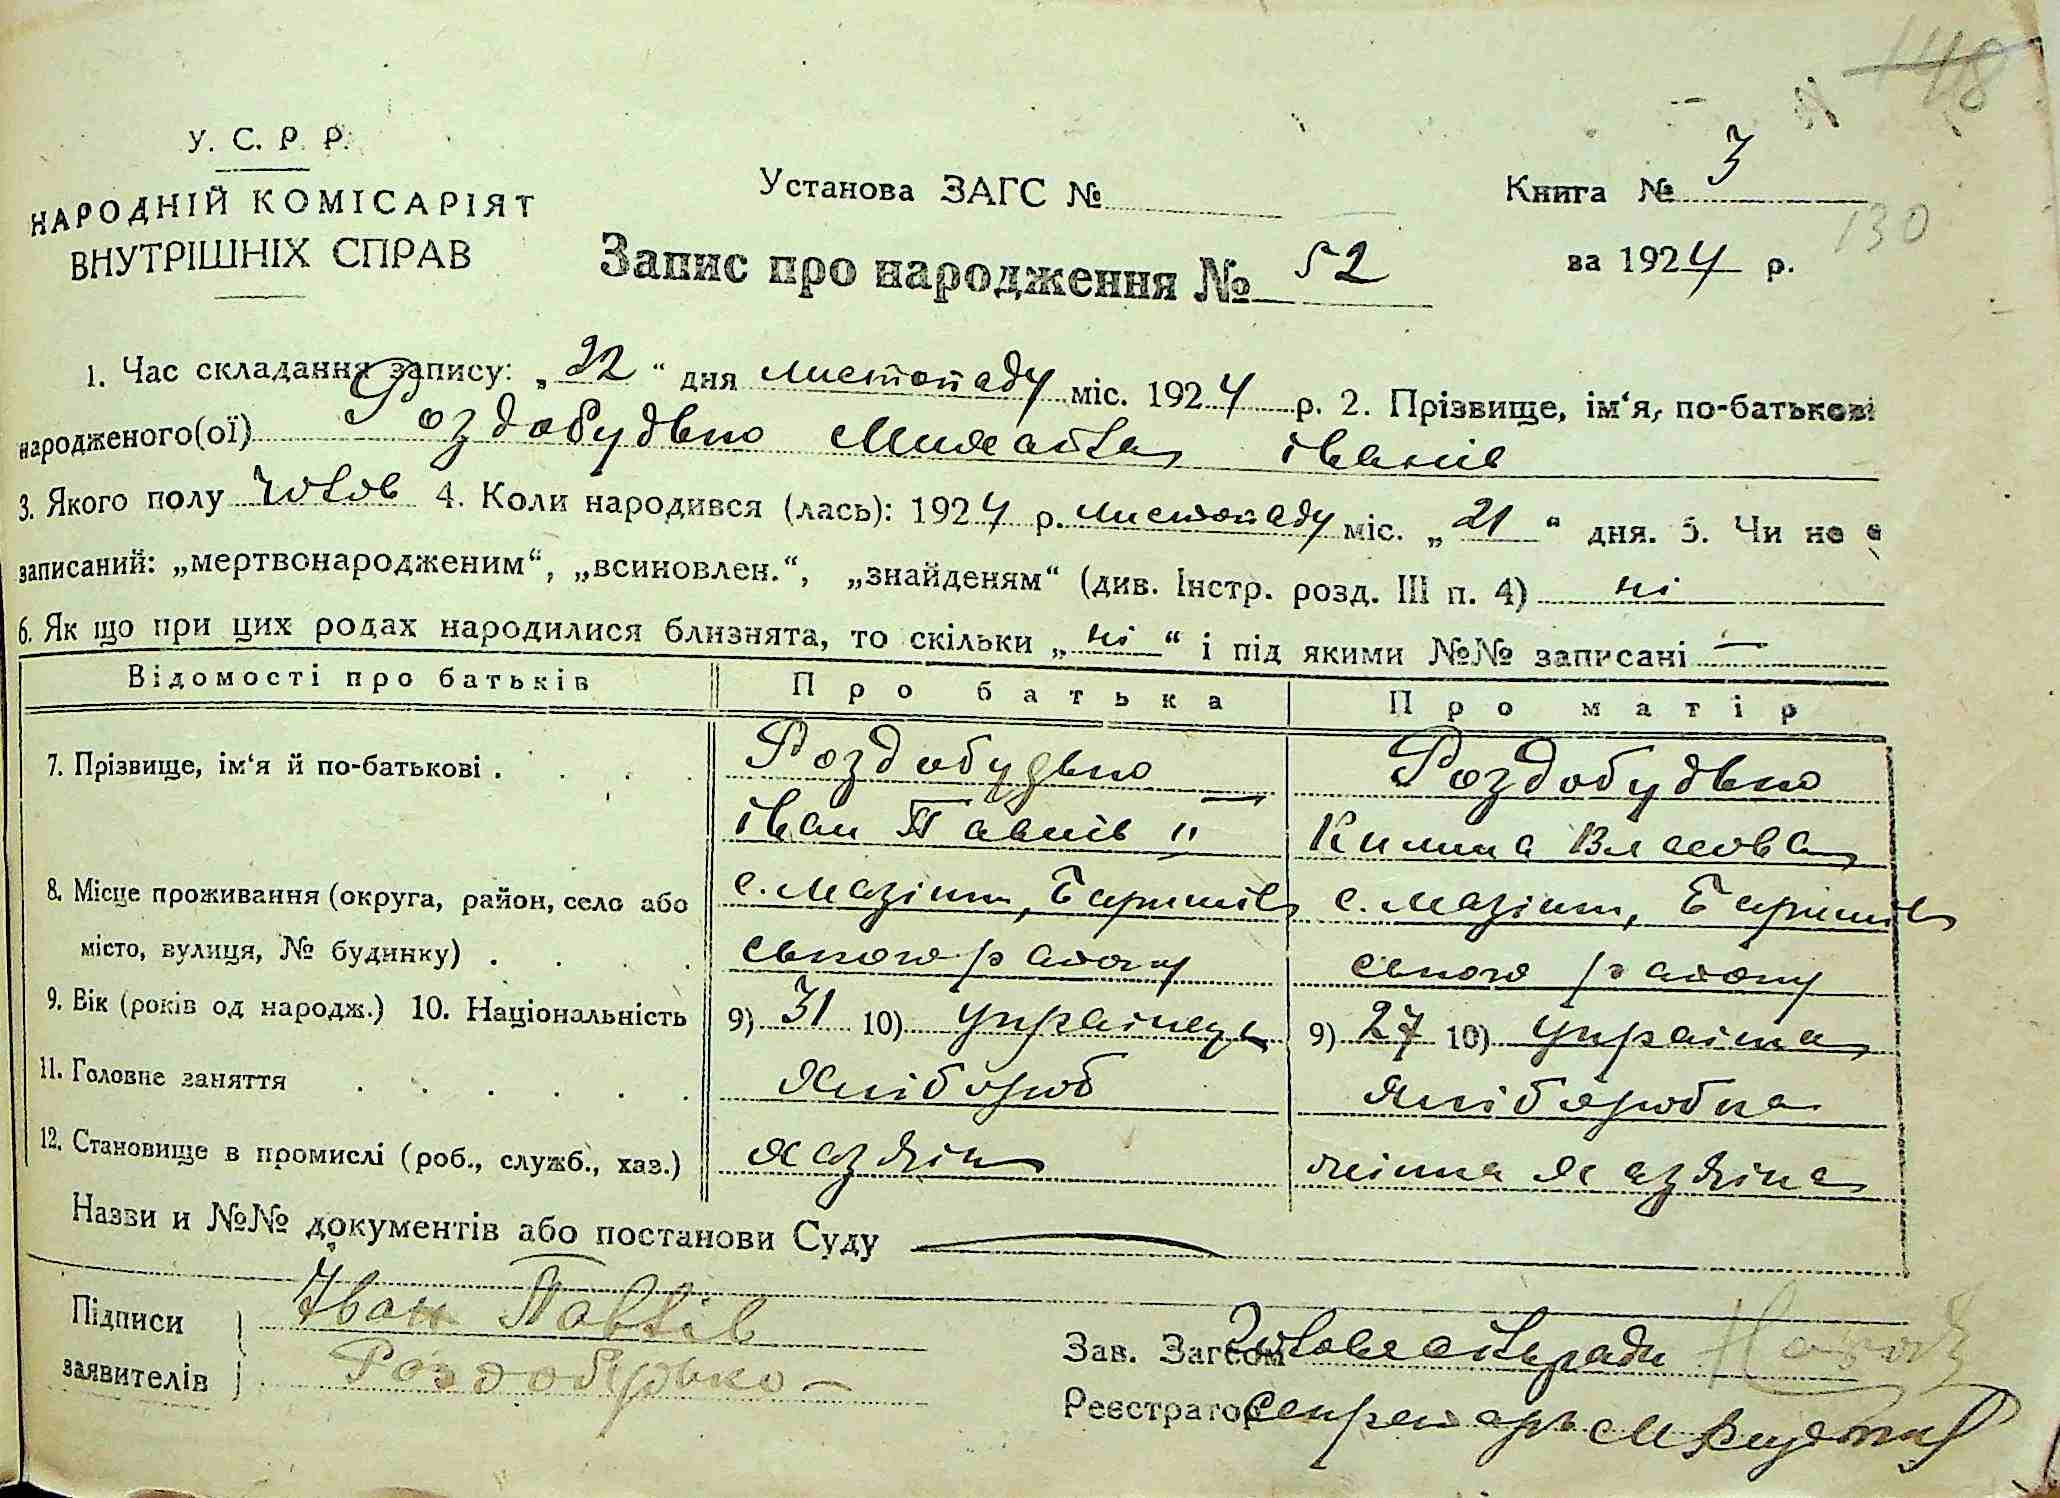 148
У. С. Р. Р.
НАРОДНІЙ КОМІСАРІЯТ
ВНУТРІШНІХ СПРАВ
Установа ЗАГС №
Книга № 3
130
Запис про народження № 52
за 1924 р.
1. Час складання запису: „22“ дня листопаду міс. 1924 р. 2. Прізвище, ім‘я, по-батькові
народженого(ої) Роздобудько Михайла Іванів
3. Якого полу чолов 4. Коли народився (лась): 1924 р. листопаду міс. „21“ дня. 5. Чи не є
записаний: „мертвонародженим“, „всиновлен.“, „знайденям“ (див. Інстр. розд. III п. 4) ні
6. Як що при цих родах народилися близнята, то скільки „ні“ і під якими №№ записані —
Відомості про батьків Про батька Про матір
7. Прізвище, ім‘я й по-батькові . . . . Роздобудько Роздобудько
Іван Павлів II Килина Власова
8. Місце проживання (округа, район, село або с. Мазінки, Баришів с. Мазінки, Баришів
місто, вулиця, № будинку) . . . . ського району ського району
9. Вік (років од народж.) 10. Національність 9) 31 10) Українець 9) 27 10) Українка
11. Головне заняття . . . . . . Хлібороб Хлібаробка
12. Становище в промислі (роб., служб., хаз.) Хазяїн жінка Хазяїна
Назви и №№ документів або постанови Суду —
Підписи Іван Павлів
заявителів Роздобудько
Зав. Загсом Голова сільради
Реєстратор Секретарь